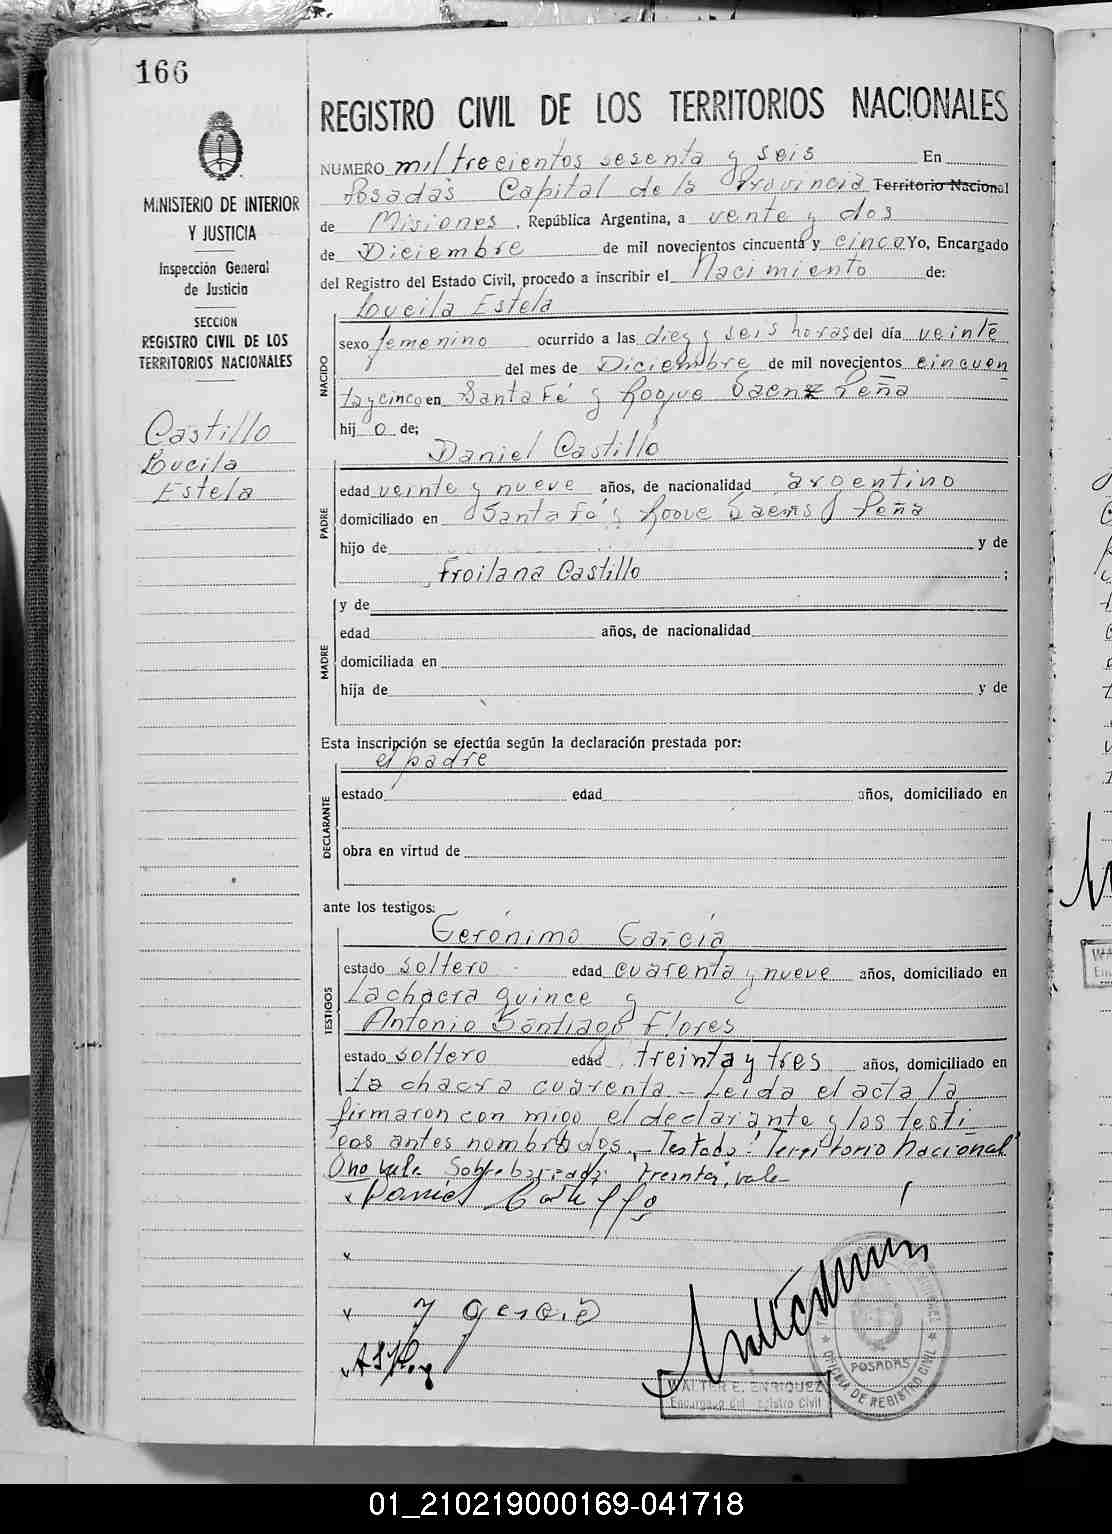 166
REGISTRO CIVIL DE LOS TERRITORIOS NACIONALES
MINISTERIO DE INTERIOR
Y JUSTICIA
Inspección General
de Justicia
SECCION
REGISTRO CIVIL DE LOS
TERRITORIOS NACIONALES
Castillo
Lucila
Estela
NUMERO mil trecientos sesenta y seis En
Posadas Capital de la Provincia Territorio Nacional
de Misiones, República Argentina, a vente y dos
de Diciembre de mil novecientos cincuenta y cinco Yo, Encargado
del Registro del Estado Civil, procedo a inscribir el Nacimiento de:
Lucila Estela
NACIDO
sexo femenino ocurrido a las diez y seis horas del día veinte
del mes de Diciembre de mil novecientos cincuen
ta y cinco en Santa Fé y Roque Saenz Peña
hij o de;
Daniel Castillo
PADRE
edad veinte y nueve años, de nacionalidad argentino
domiciliado en Santa Fé y Roque Saens Peña
hijo de y de
Froilana Castillo ;
MADRE
y de
edad años, de nacionalidad
domiciliada en
hija de y de
Esta inscripción se efectúa según la declaración prestada por:
el padre
DECLARANTE
estado edad años, domiciliado en
obra en virtud de
ante los testigos:
Gerónimo García
TESTIGOS
estado soltero edad cuarenta y nueve años, domiciliado en
La chacra quince y
Antonio Santiago Flores
estado soltero edad treinta y tres años, domiciliado en
La chacra cuarenta - Leida el acta la
firmaron con migo el declarante y los testi
gos antes nombrados - Testado: "Territorio Nacional"
O no vale Sobre barreada: treinta, vale-
x Daniel Castillo
x
x y garcia
x
WALTER E. ENRIQUEZ
Encargado del Registro Civil
POSADAS
OFICINA DE REGISTRO CIVIL
01_210219000169-041718